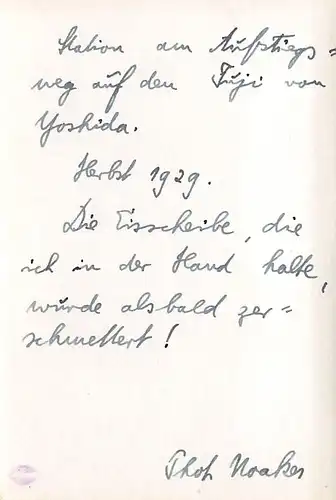 Station am Aufstiegs=
weg auf den Fuji von
Yoshida.
Herbst 1929.
Die Eisscheibe, die
ich in der Hand halte,
wurde alsbald zer=
schmettert!
Phot. Noakes